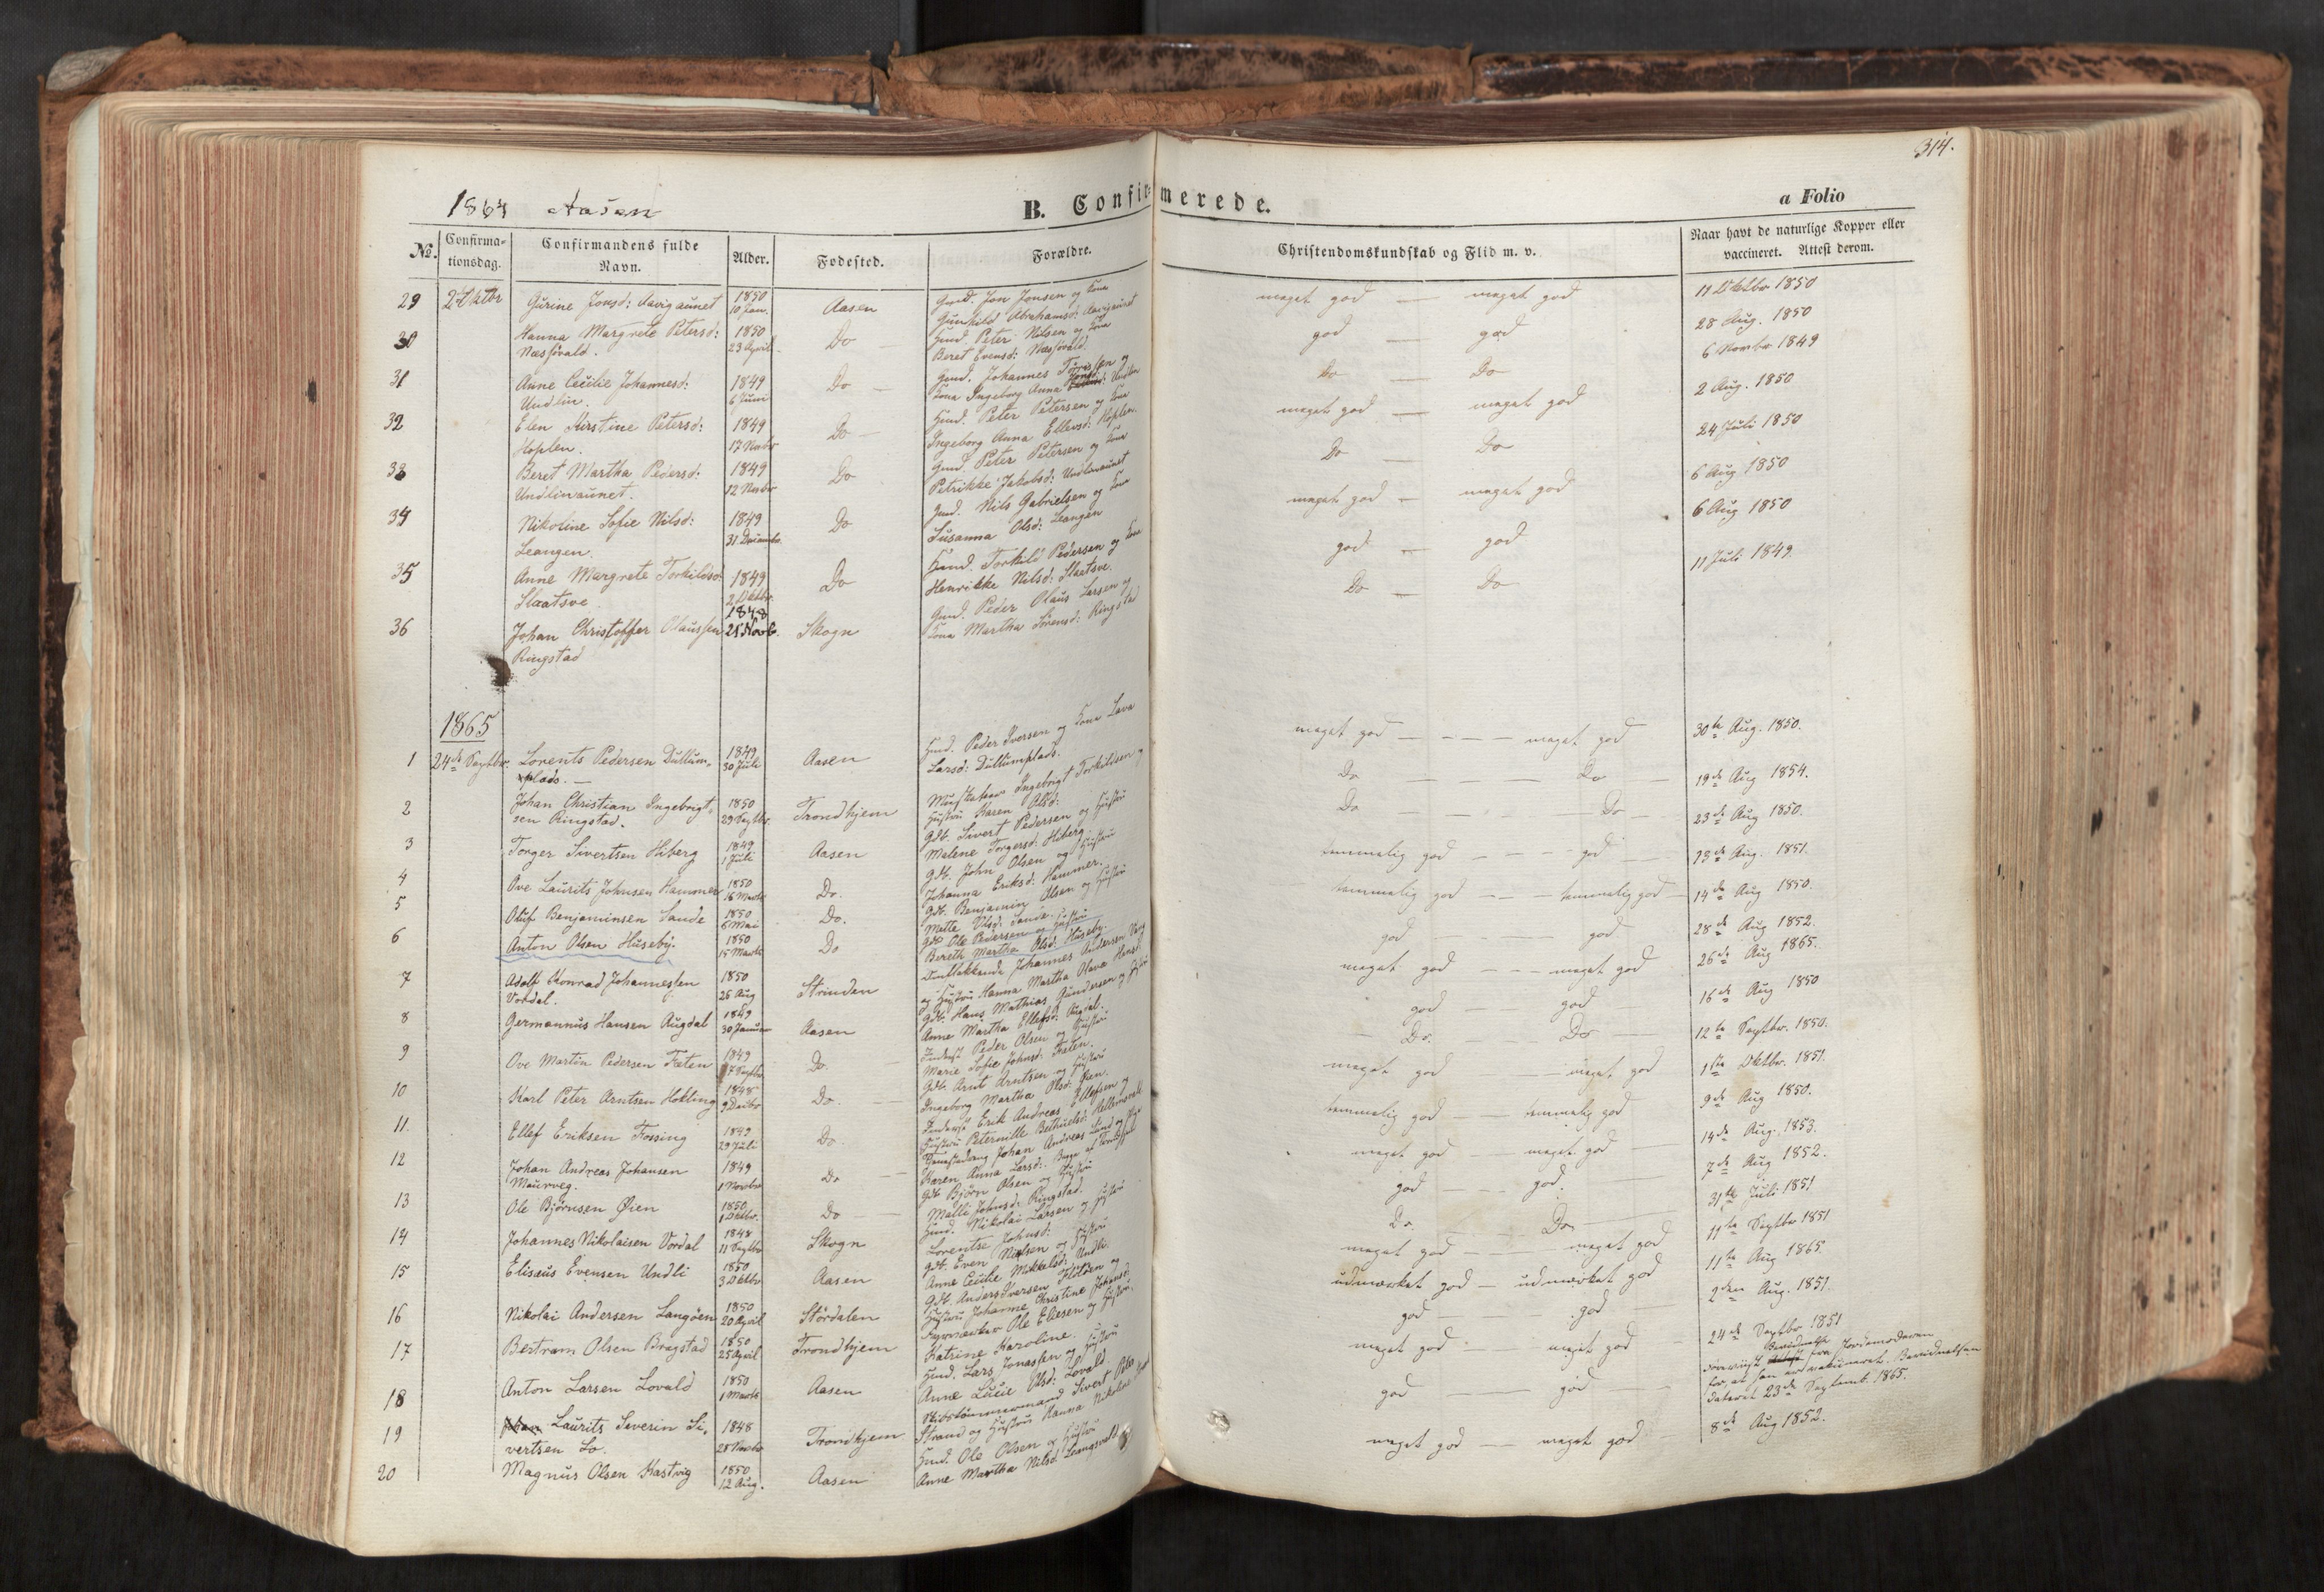 314.
1864 Aasen
B. Confirmerede.
a Folio
№. Confirmationsdag. Confirmandens fulde Navn. Alder. Fødested. Forældre. Christendomskundskab og Flid m. v. Naar havt de naturlige Kopper eller vaccineret. Attest derom.
29 Gurine Jonsd: Aavigaunet 1850 10 Jan. Aasen Gmd. Jon Jonsen og Kone meget god — meget god 11 Oktbr 1850
Gunhild Abrahamsd: Aavigaunet
30 Hanna Margrete Petersd: 1850 23 April Do Hmd. Peter Nilsen og Kone god — god 28 Aug. 1850
Næssvald. Beret Evensd: Næssvald.
31 Anne Cecilie Johannesd: 1849 6 Juni Do Gmd. Johannes og Do — Do 6 Novbr 1849
Undlin. Kone Ingeborg Anna
32 Elen Kirstine Petersd: 1849 17 Novbr Do Hmd. Peter Petersen og Kone meget god — meget god 2 Aug. 1850
Hoplen. Ingeborg Anna Ellevsd: Hoplen.
33 Beret Martha Pedersd: 1849 12 Novbr Do Gmd. Peter Petersen og Kone Do — Do 24 Juli 1850
Undlinaunet. Petrikke Jakobsd: Undlinaunet
34 Nikoline Sofie Nilsd: 1849 31 Decembr. Do Gmd. Nils Gabrielsen og Kone meget god — meget god 6 Aug 1850
Leangen. Susanna Olsd: Leangen
35 Anne Margrete Torkildsd: 1849 2 Oktbr. Do Hmd. Torkild Pedersen og Kone god — god 6 Aug 1850
Slaatsve Henrikke Nilsd: Slaatsve.
36 Johan Christoffer Olaussen 1848 25 Novb. Skogn Gmd. Peder Olaus Larsen og Do — Do 11 Juli 1849
Ringstad Kone Martha Sørensd: Ringstad
1865
1 24de Septbr. Lorents Pedersen Dullum- 1849 30 Juli Aasen Hmd. Peder Iversen og Kone meget god — meget god 30te Aug. 1850.
plads. Larsd: Dullumplads.
2 Johan Christian Ingebrigt- 1850 29 Septbr. Trondhjem Ingebrigt Torkildsen og Do — Do 19de Aug 1854.
sen Ringstad. Hustru Karen Olsd:
3 Torger Sivertsen Hiberg 1849 1 Juli Aasen Gdb. Sivert Pedersen og Hustru Do — Do 23de Aug 1850.
Malene Torgersd: Hiberg.
4 Ove Laurits Johnsen Hammer 1850 16 Marts Do. Gdb. John Olsen og Hustru temmelig god — god 23de Aug. 1851.
Johanna Eriksd: Hammer.
5 Oluf Benjaminsen Sande 1850 6 Mai Do. Gdb. Benjamin Olsen og Hustru temmelig god — temmelig god 14de Aug 1850.
Mette Olsd: Sande.
6 Anton Olsen Huseby. 1850 15 Marts Do Gdb Ole Pedersen og Hustru god — god 28de Aug 1852.
Bereth Martha Olsd: Huseby.
7 Adolf Konrad Johannessen 1850 26 Aug Strinden Johannes Andersen meget god — meget god 26de Aug 1865.
Vordal. og Hustru Hanna Martha Olava Hansd:
8 Germannus Hansen Augdal 1849 30 Januar Aasen Gdb. Hans Mathias Gundersen og Hustru god — god 16de Aug 1850
Anne Martha Ellefsd: Augdal.
9 Ove Martin Pedersen Fæten 1849 Do. Inderst Peder Olsen og Hustru Do. — Do 12te Septbr. 1850.
Marie Sofie Johnsd: Fæten.
10 Karl Peter Arntsen Hokling 1848 9 Decbr Do. Gdb. Arnt Arntsen og Hustru meget god — meget god 1ste Oktbr. 1851.
Ingeborg Martha Olsd: Øien.
11. Ellef Eriksen Fossing 1849 29 Juli Do. Inderst Erik Andreas Ellefsen og temmelig god — temmelig god 9de Aug 1850.
Hustru Peternille Bethuelsd:
12 Johan Andreas Johansen 1849 1 Novbr Do Johan Andreas Lund og meget god — meget god 14de Aug. 1853.
Maurveg. Karen Anna Larsd:
13 Ole Bjørnsen Øien 1850 1 Oktbr. Do Gdb Bjørn Olsen og Hustru god — god. 7de Aug 1852.
Malli Johnsd: Ringstad.
14 Johannes Nikolaisen Vordal 1848 11 Septbr Skogn Hmd. Nikolai Larsen og Hustru Do. — Do. 31te Juli 1851
Lorentse Johnsd:
15 Elisæus Evensen Undli 1850 3 Oktbr Aasen Gdb. Even Nielsen og Hustru meget god — meget god 11te Septbr 1851
Anne Cecilie Mikkelsd: Undli.
16 Nikolai Andersen Langøen 1850 20 April Stördalen Gdb. Anders Iversen og udmærket god — udmærket god 11te Aug 1865.
Hustru Johanne Christine Johansd:
17 Bertram Olsen Bragstad 1850 25 April Trondhjem Fyrværker Ole Ellesen og Hustru god — god 2den Aug. 1851.
Katrine Karoline.
18 Anton Larsen Lovald 1850 1 Marts Aasen Hmd. Lars Jonassen og Hustru meget god — meget god 24de Septbr 1851
Anne Lucie Olsd: Lovald.
19 Laurits Severin Si- 1848 28 Novbr Trondhjem Skibstømmermand Sivert god — god Forevist Bevidnelse fra Jordemoderen
vertsen Lo. Strand og Hustru Hanna Nikoline for, at han er vakcineret. Bevidnelsen
dateret 23de Septemb. 1865.
20 Magnus Olsen Hastvig 1850 12 Aug. Aasen Hmd. Ole Olsen og Hustru meget god — meget god 8de Aug 1852.
Anne Martha Nilsd: